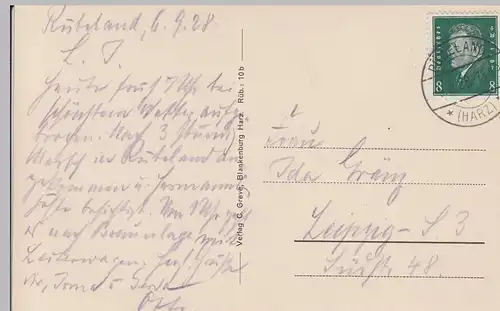 Rübeland, 6.9.28
L. T.
Heute früh 7 Uhr bei
schönstem Wetter aufge-
brochen. Nach 3 stünd.
Marsch in Rübeland an-
gekommen u. Hermanns-
höhle besichtigt. Von 1 Uhr geht
es nach Braunlage mit
Leiterwagen. Herzl. Grüße
Dir, Irma u. Gerda
Otto
Verlag C. Greve, Blankenburg Harz. Rüb.: 10 b
Deutsches Reich
8 8
RÜBELAND
* (HARZ)
Frau
Ida
Leipzig - S 3
48.